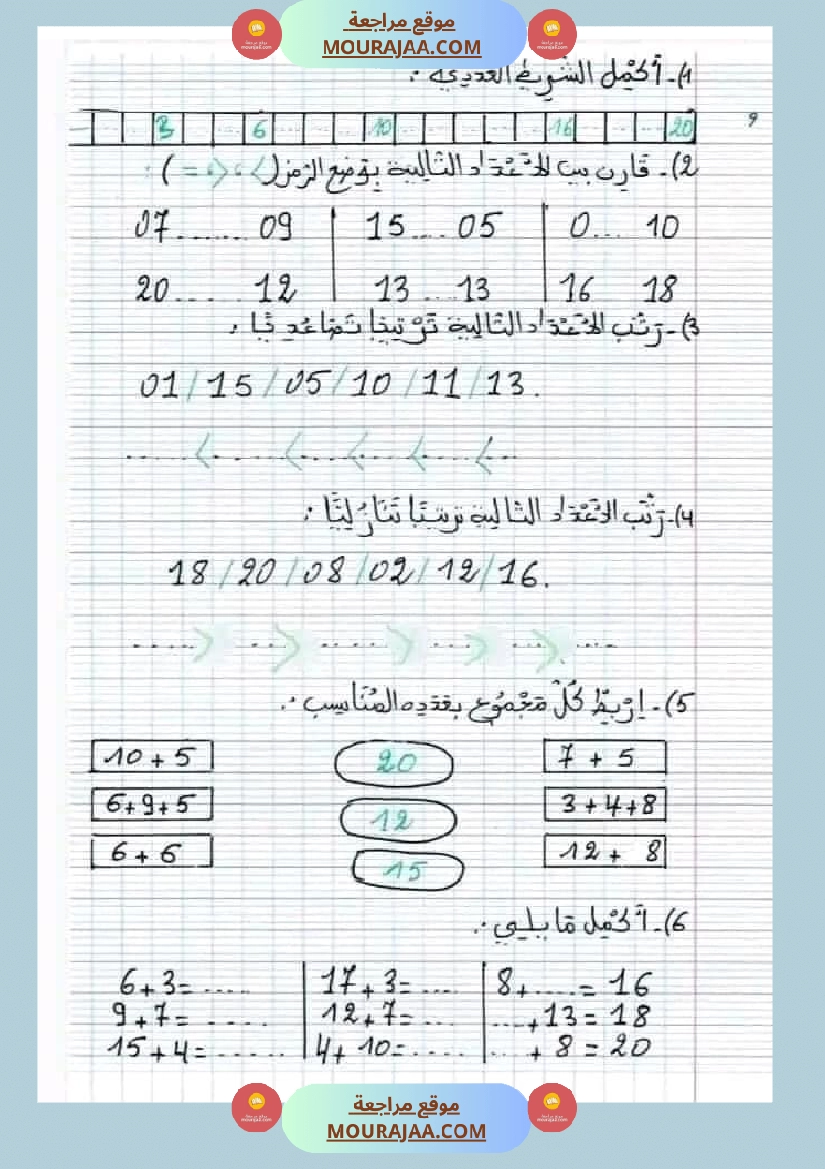 موقع مراجعة
MOURAJAA.COM
1)- أكمل الشريط العددي :
3 6 10 16 20
9
2)- قارن بين الأعداد التالية بوضع الرمز (> ، < ، = ) :
07 ........ 09 | 15 .... 05 | 0 .... 10
20 .... .... 12 | 13 .... 13 | 16 18
3)- رتب الأعداد التالية ترتيبا تصاعديا :
01 / 15 / 05 / 10 / 11 / 13 .
...... < ...... < ...... < ...... < ...... < ...
4)- رتب الأعداد التالية ترتيبا تنازليا :
18 / 20 / 08 / 02 / 12 / 16 .
...... > ... > ...... > ...... > ... > ....
5)- اربط كل مجموع بعدده المناسب :
10 + 5 20 7 + 5
6+9+5 12 3+4+8
6 + 6 15 12 + 8
6)- أكمل ما يلي :
6+3= ..... | 17+3= .... | 8+.....= 16
9+7= ..... | 12+7= ... | ....+13= 18
15+4= ...... | 4+10= ..... | ....+ 8 = 20
موقع مراجعة
MOURAJAA.COM